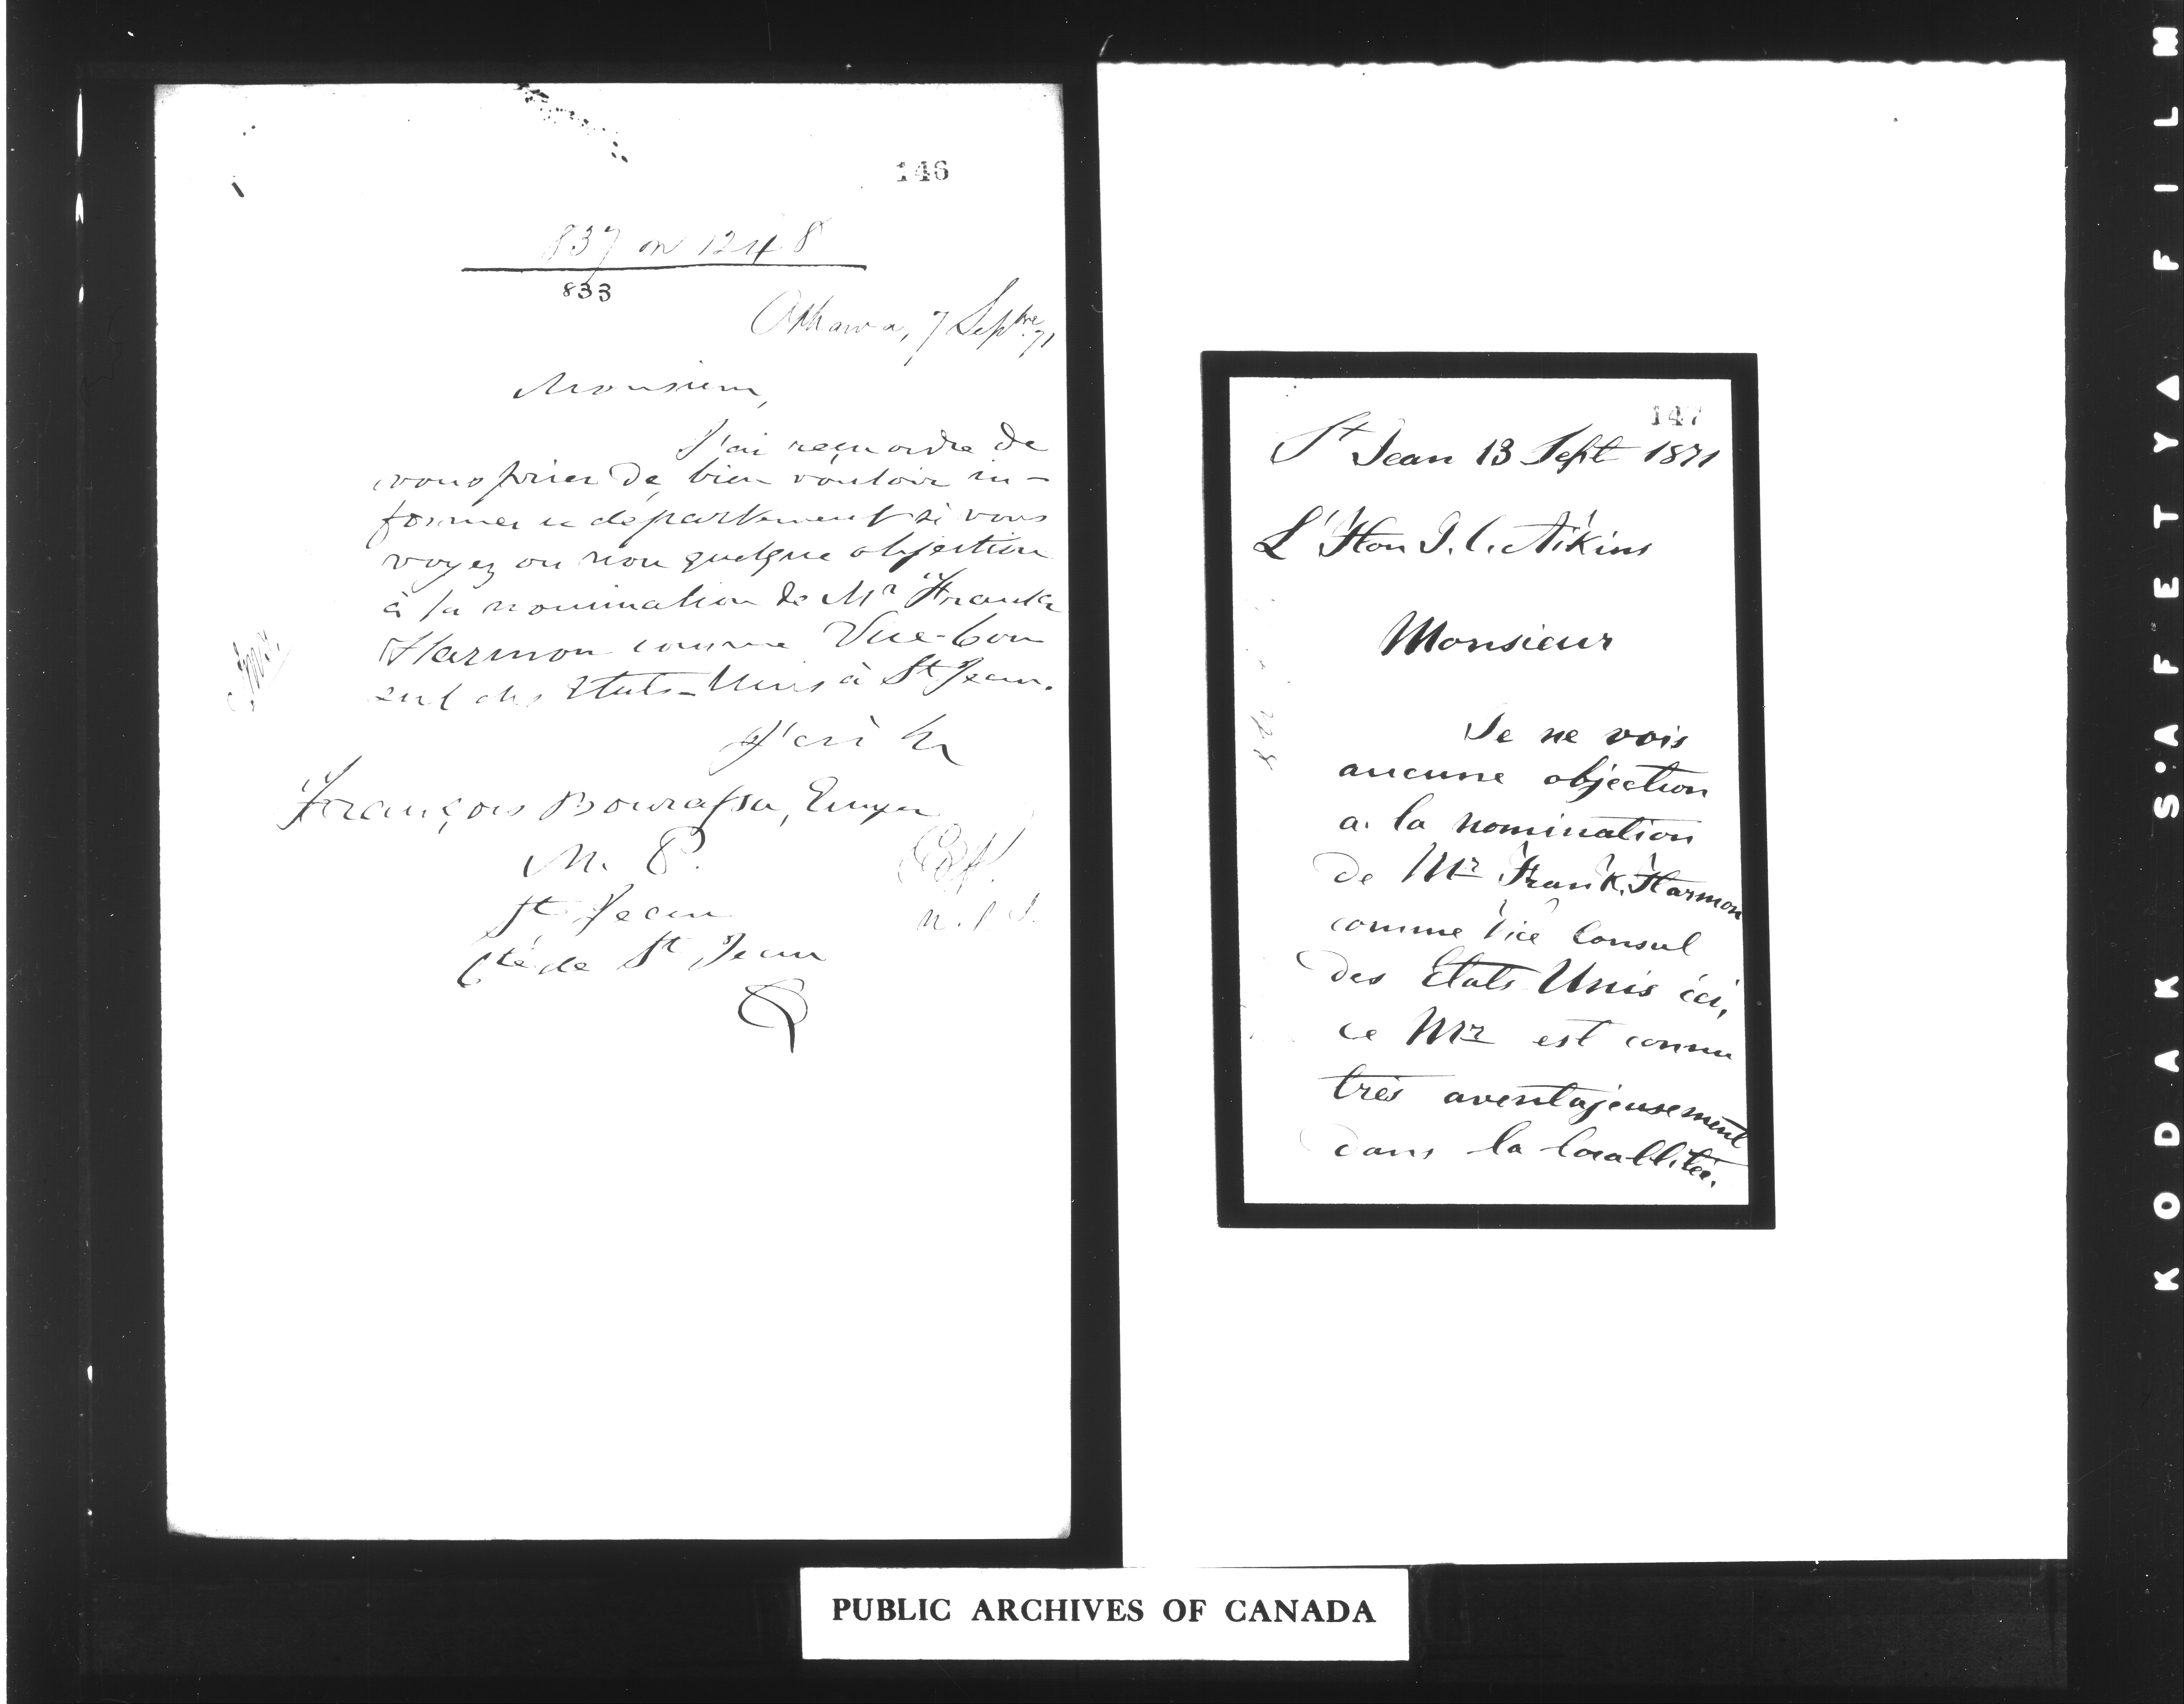 146
837 on 1248
833
Ottawa, 7 Septbre 71
Monsieur,
J'ai reçu ordre de
vous prier de bien vouloir in-
former ce département si vous
voyez ou non quelque objection
à la nomination de Mr Frank
Harmon comme Vice-Con
sul des Etats-Unis à St Jean.
J'ai
François Bourassa, Ecuyer
M. P.
St Jean
Cté de St Jean
147
St Jean 13 Sept 1871
L'Hon J. C. Aikins
Monsieur
Je ne vois
aucune objection
a la nomination
de Mr Frank Harmon
comme Vice Consul
des Etats Unis ici,
ce Mr est connu
très aventajeusement
dans la locallitée.
PUBLIC ARCHIVES OF CANADA
KODAK S'AFETY FILM